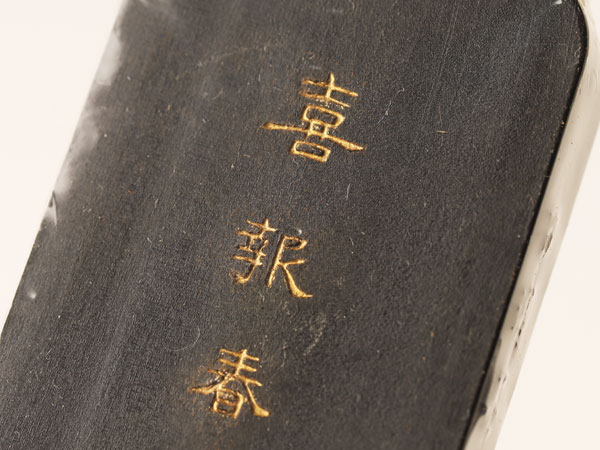 喜報春